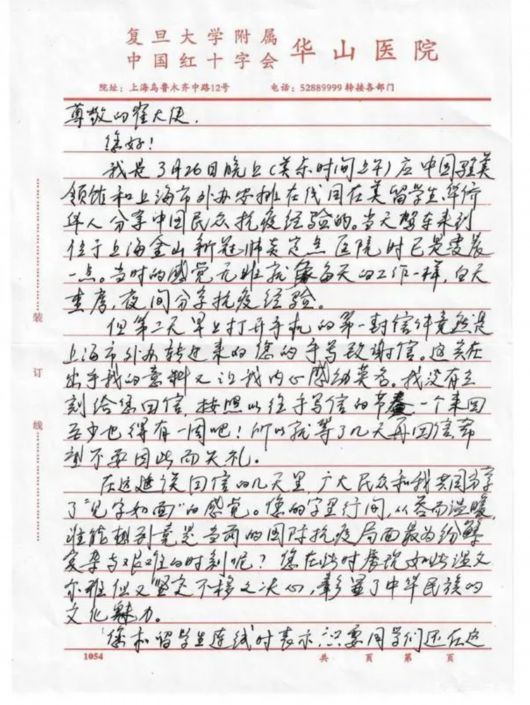 复旦大学附属
中国红十字会 华山医院
院址：上海乌鲁木齐中路12号 电话：52889999 转接各部门
尊敬的崔大使，
您好！
我是3月26日晚上（美东时间上午）应中国驻美
领馆和上海市外办安排在线同在美留学生、华侨
华人分享中国民众抗疫经验的。当天驾车来到
位于上海金山新冠肺炎定点医院时已是凌晨
一点。当时的感觉无非就像每天的工作一样，白天
查房、夜间分享抗疫经验。
但第二天早上打开手机的第一封信件竟然是
上海市外办转过来的您的手写致谢信。这实在
出乎我的意料又让我内心感动莫名。我没有立
刻给您回信，按照以往手写信的节奏一个来回
至少也得有一周吧！所以就等了几天再回信希
望不要因此而失礼。
在这延误回信的几天里，广大民众和我共同分享
了“见字如面”的感觉。您的字里行间，从容而温暖，
谁能想到竟是当两的国对抗疫局面最为纷繁
复杂与艰难的时刻呢？您在此时展现如此温文
尔雅但又坚定不移之决心，彰显了中华民族的
文化魅力。
您和留学生连线时表示，只要同学们还在这
装
订
线
1054 共 页 第 页